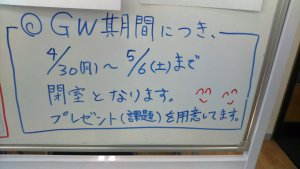 ◎ GW期間につき、
4/30(月)〜5/6(土)まで
閉室となります。
プレゼント(課題)を用意してます。